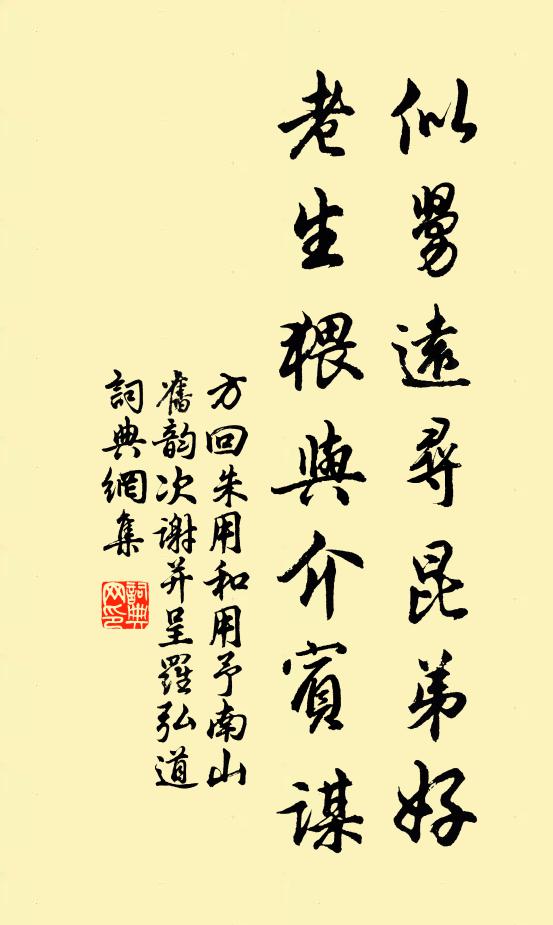 似勞遠尋昆弟好
老生猥與介賓謀
方回朱用和用予南山
舊韵次謝并呈羅弘道
詞典網集
詞典
网印